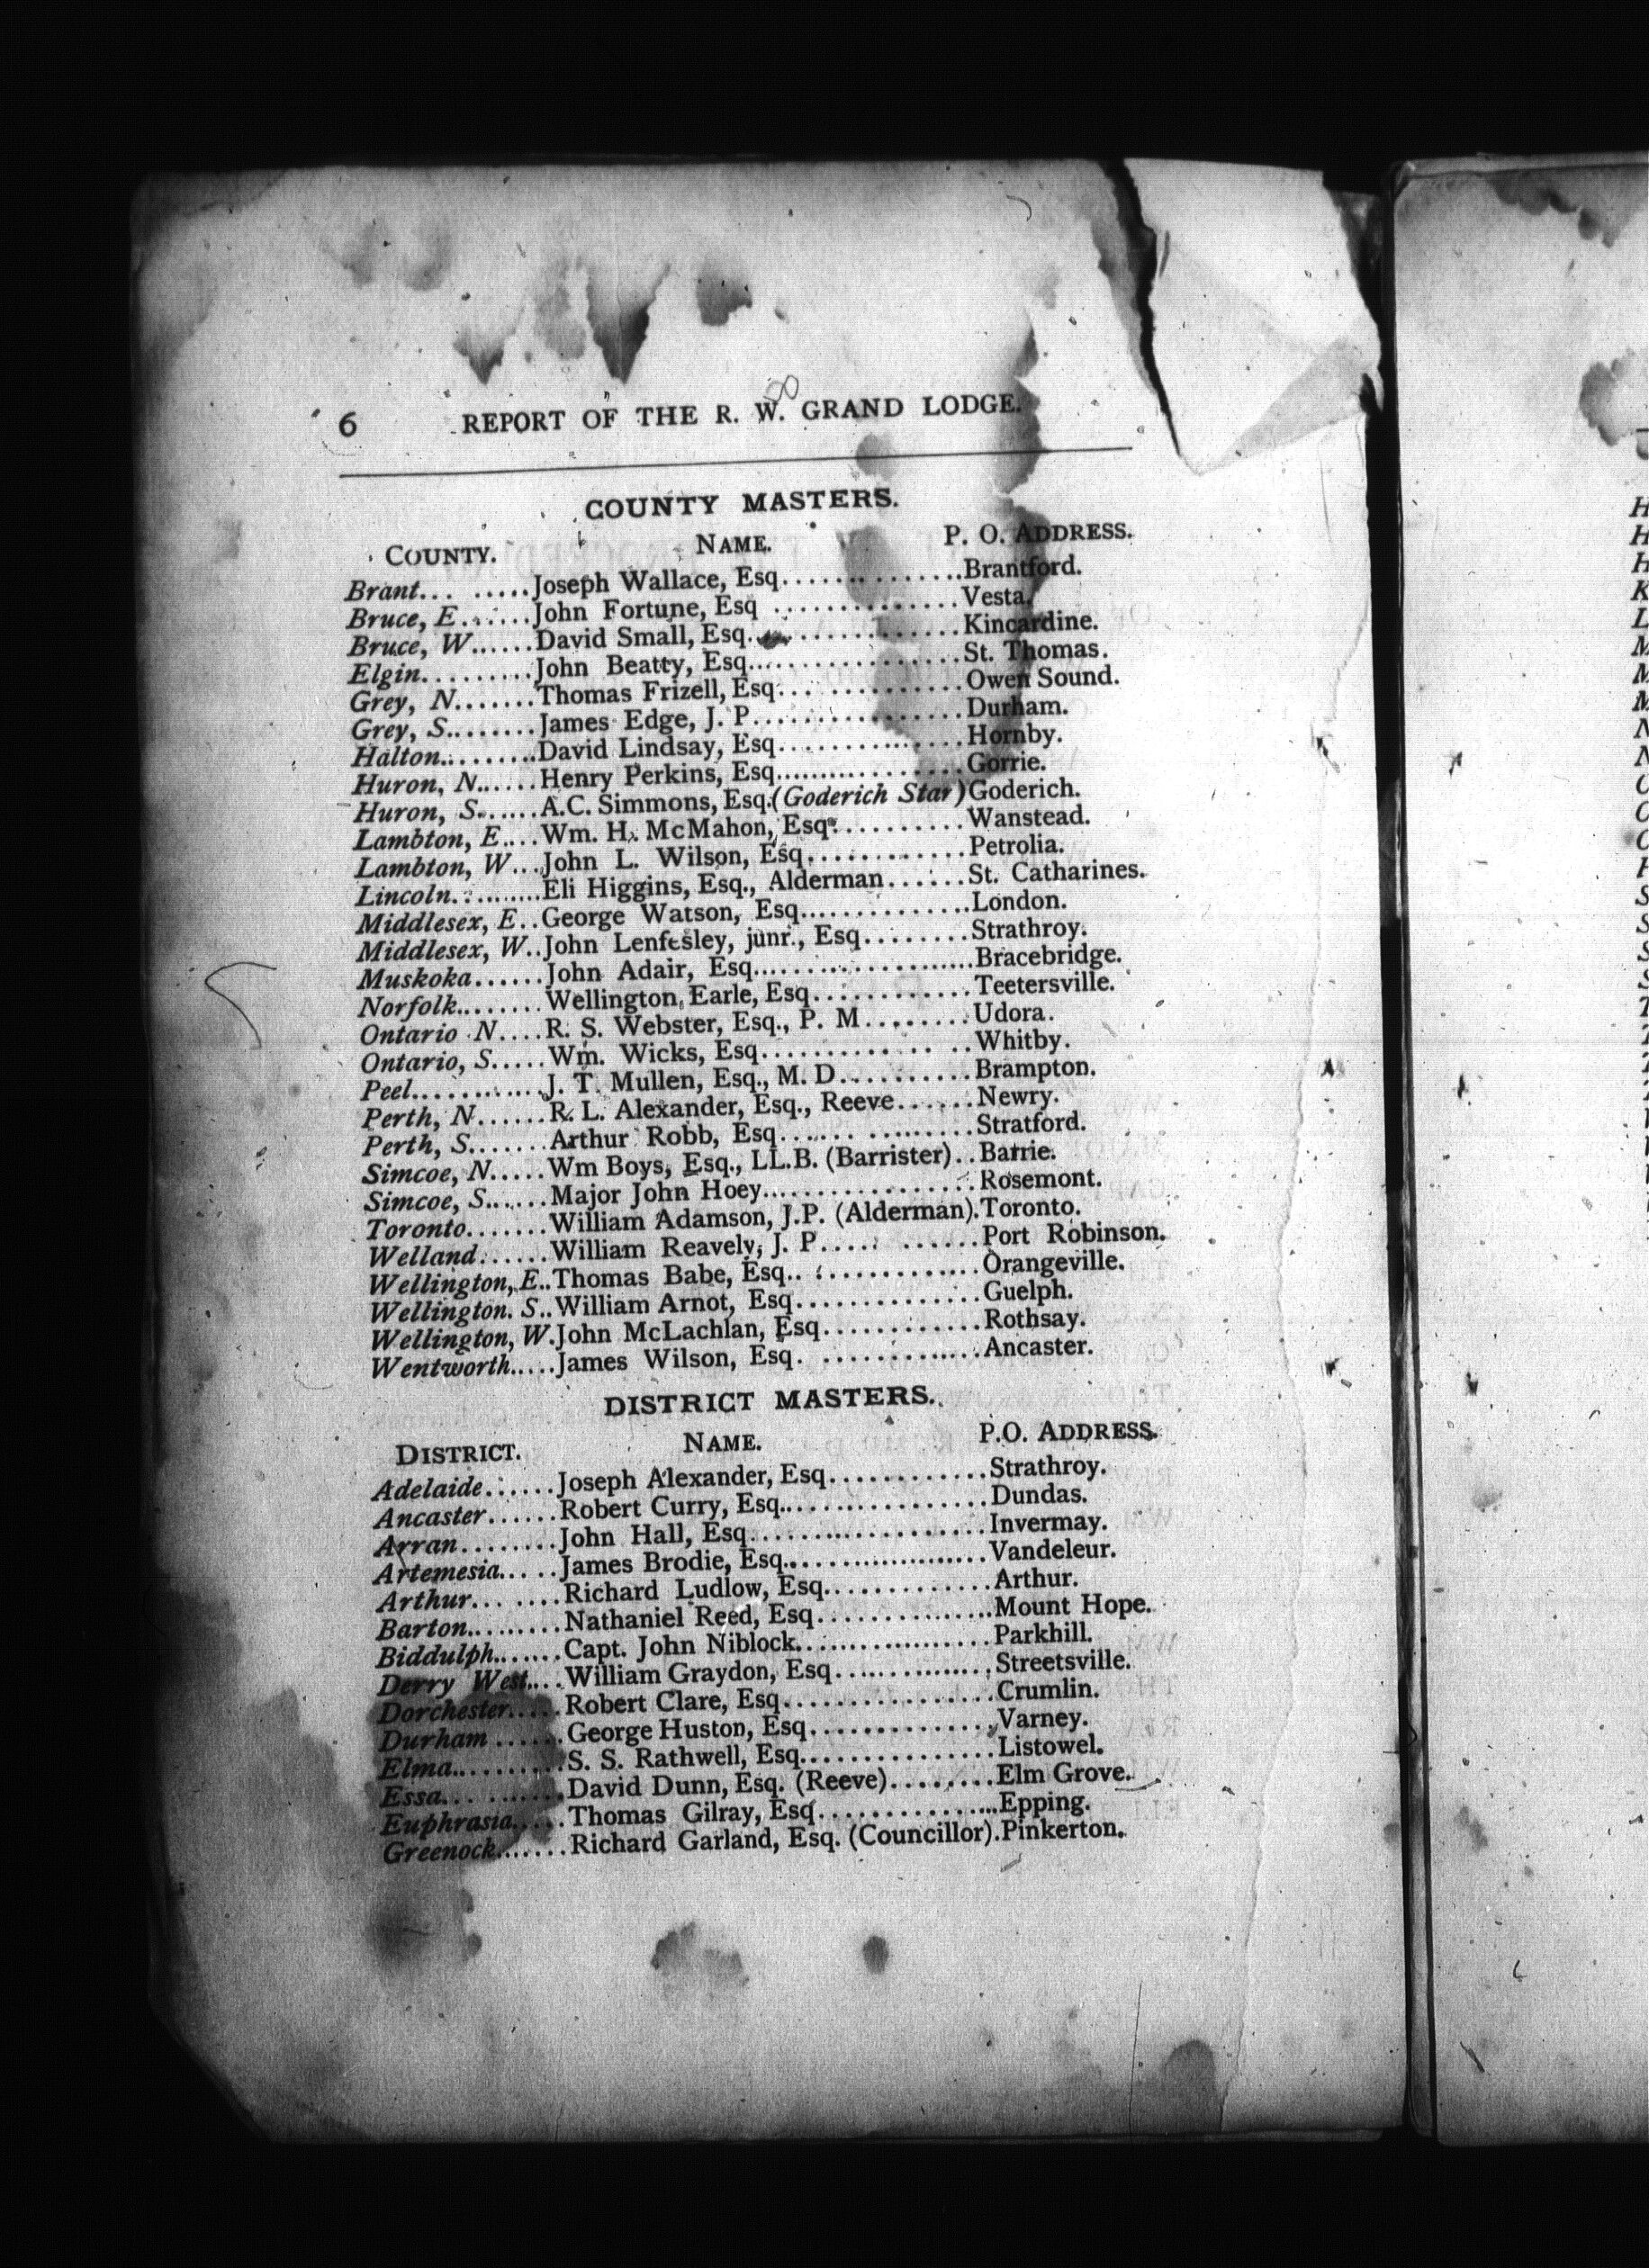 6 REPORT OF THE R. W. GRAND LODGE.
COUNTY MASTERS.
COUNTY. NAME. P. O. ADDRESS.
Brant... .....Joseph Wallace, Esq..............Brantford.
Bruce, E......John Fortune, Esq ..............Vesta.
Bruce, W......David Small, Esq...............Kincardine.
Elgin.........John Beatty, Esq................St. Thomas.
Grey, N.......Thomas Frizell, Esq... ...........Owen Sound.
Grey, S........James Edge, J. P................Durham.
Halton.........David Lindsay, Esq..............Hornby.
Huron, N......Henry Perkins, Esq...............Gorrie.
Huron, S.......A.C. Simmons, Esq.(Goderich Star)Goderich.
Lambton, E....Wm. H. McMahon, Esq...........Wanstead.
Lambton, W...John L. Wilson, Esq............Petrolia.
Lincoln.........Eli Higgins, Esq., Alderman......St. Catharines.
Middlesex, E..George Watson, Esq.............London.
Middlesex, W..John Lenfesley, junr., Esq........Strathroy.
Muskoka......John Adair, Esq..................Bracebridge.
Norfolk........Wellington Earle, Esq............Teetersville.
Ontario N....R. S. Webster, Esq., P. M........Udora.
Ontario, S.....Wm. Wicks, Esq............ .. ..Whitby.
Peel............J. T. Mullen, Esq., M. D..........Brampton.
Perth, N......R. L. Alexander, Esq., Reeve......Newry.
Perth, S.......Arthur Robb, Esq...... .........Stratford.
Simcoe, N.....Wm Boys, Esq., LL.B. (Barrister)..Barrie.
Simcoe, S......Major John Hoey................Rosemont.
Toronto.......William Adamson, J.P. (Alderman).Toronto.
Welland......William Reavely, J. P..... ......Port Robinson.
Wellington, E..Thomas Babe, Esq.. ............Orangeville.
Wellington. S..William Arnot, Esq..............Guelph.
Wellington, W.John McLachlan, Esq............Rothsay.
Wentworth.....James Wilson, Esq. ............Ancaster.
DISTRICT MASTERS.
DISTRICT. NAME. P.O. ADDRESS.
Adelaide......Joseph Alexander, Esq............Strathroy.
Ancaster......Robert Curry, Esq................Dundas.
Arran........John Hall, Esq..................Invermay.
Artemesia.....James Brodie, Esq................Vandeleur.
Arthur... ....Richard Ludlow, Esq.............Arthur.
Barton.........Nathaniel Reed, Esq..............Mount Hope.
Biddulph.......Capt. John Niblock................Parkhill.
Derry West....William Graydon, Esq............Streetsville.
Dorchester.....Robert Clare, Esq................Crumlin.
Durham ......George Huston, Esq..............Varney.
Elma..........S. S. Rathwell, Esq..............Listowel.
Essa... .......David Dunn, Esq. (Reeve)........Elm Grove.
Euphrasia.....Thomas Gilray, Esq..............Epping.
Greenock.......Richard Garland, Esq. (Councillor).Pinkerton.